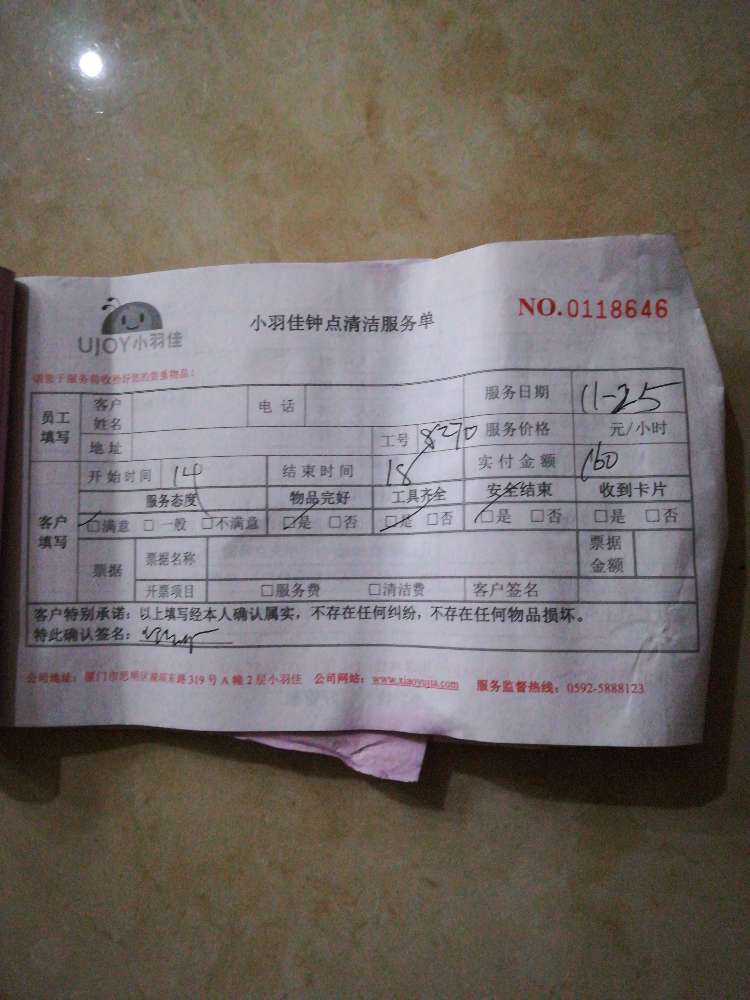 UJOY小羽佳
小羽佳钟点清洁服务单
NO.0118646
请您于服务前收拾好您的贵重物品:
员工填写 客户姓名 电话 服务日期 11-25
地址 工号 8270 服务价格 元/小时
客户填写 开始时间 14 结束时间 18 实付金额 160
服务态度 物品完好 工具齐全 安全结束 收到卡片
☑满意 □一般 □不满意 ☑是 □否 ☑是 □否 ☑是 □否 □是 □否
票据 票据名称 票据金额
开票项目 □服务费 □清洁费 客户签名
客户特别承诺:以上填写经本人确认属实,不存在任何纠纷,不存在任何物品损坏。
特此确认签名:
公司地址:厦门市思明区湖滨东路319号A幢2层小羽佳 公司网站:www.xiaoyujia.com 服务监督热线:0592-5888123